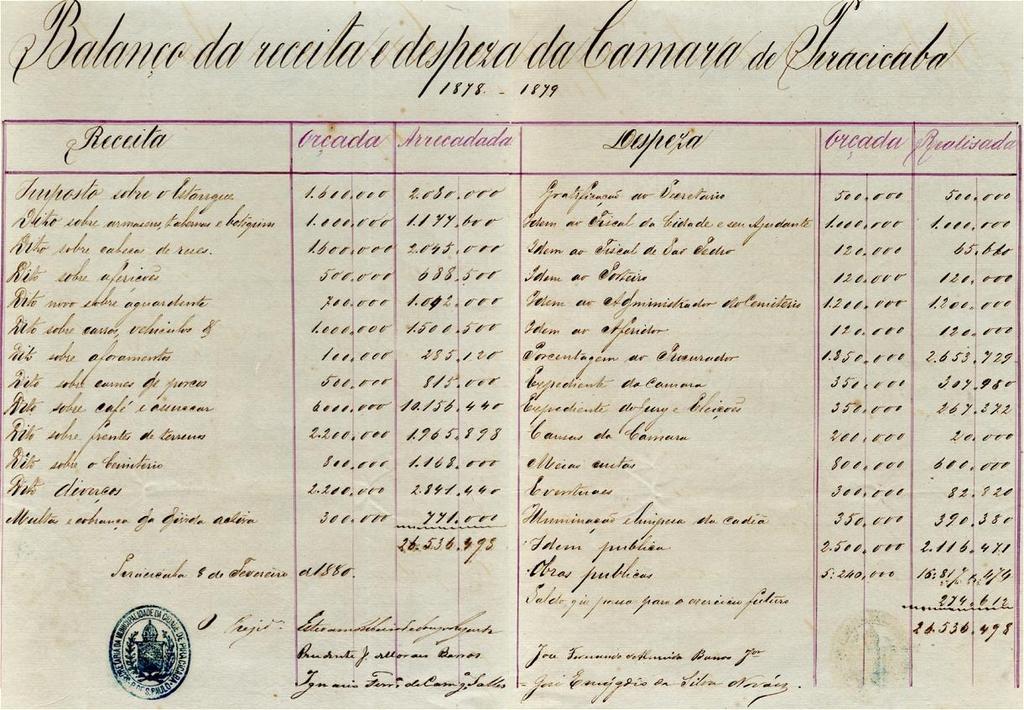 Balanço da receita e despeza da Camara de Piracicaba
1878 - 1879
Receita Orçada Arrecadada Despeza Orçada Realisada
Imposto sobre o Estanque 1.600.000 2.080.000 Gratificação ao Secretario 500.000 500.000
Dito sobre armasens, tabernas e botequins 1.000.000 1.177.600 Idem ao Fiscal da Cidade e seu Ajudante 1.000.000 1.000.000
Dito sobre cabeça de reses. 1.600.000 2.045.000 Idem ao Fiscal de São Pedro 120.000 65.660
Dito sobre aferições 500.000 688.500 Idem ao Porteiro 120.000 120.000
Dito novo sobre aguardente 700.000 1.042.000 Idem ao Administrador do Cemiterio 1.200.000 1.200.000
Dito sobre carros, vehiculos & 1.000.000 1.500.500 Idem ao Aferidor 120.000 120.000
Dito sobre aforamentos 100.000 285.120 Porcentagem ao Procurador 1.350.000 2.653.729
Dito sobre carnes de porcos 500.000 815.000 Expediente da Camara 350.000 307.980
Dito sobre café e assucar 6.000.000 10.156.440 Expediente do Jury e Eleições 350.000 267.272
Dito sobre frentes de terrenos 2.200.000 1.965.898 Causas da Camara 200.000 20.000
Dito sobre o Cemiterio 800.000 1.168.000 Meias custas 800.000 600.000
Dito diversos 2.200.000 2.841.440 Eventuaes 300.000 82.820
Multa e cobrança da divida activa 300.000 771.000 Illuminação e limpesa da cadêa 350.000 390.380
26.536.498 Idem publica 2.500.000 2.116.471
Piracicaba 8 de Fevereiro de 1880. Obras publicas 5.240.000 16.817.474
Saldo que passa para o exercicio futuro 274.612
26.536.498
O
Prudente J. de Moraes Barros José Fernando de Almeida Barros Jor
Ignacio Ferr.ª de Camg.º Salles José Emygdio da Silva Novaes.
SECRETARIA DA MUNICIPALIDADE DA CIDADE DE PIRACICABA P. DE S. PAULO